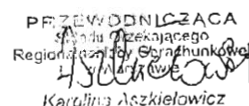 PRZEWODNICZĄCA
Składu Orzekającego
Regionalnej Izby Obrachunkowej
w
Karolina Aszkiełowicz